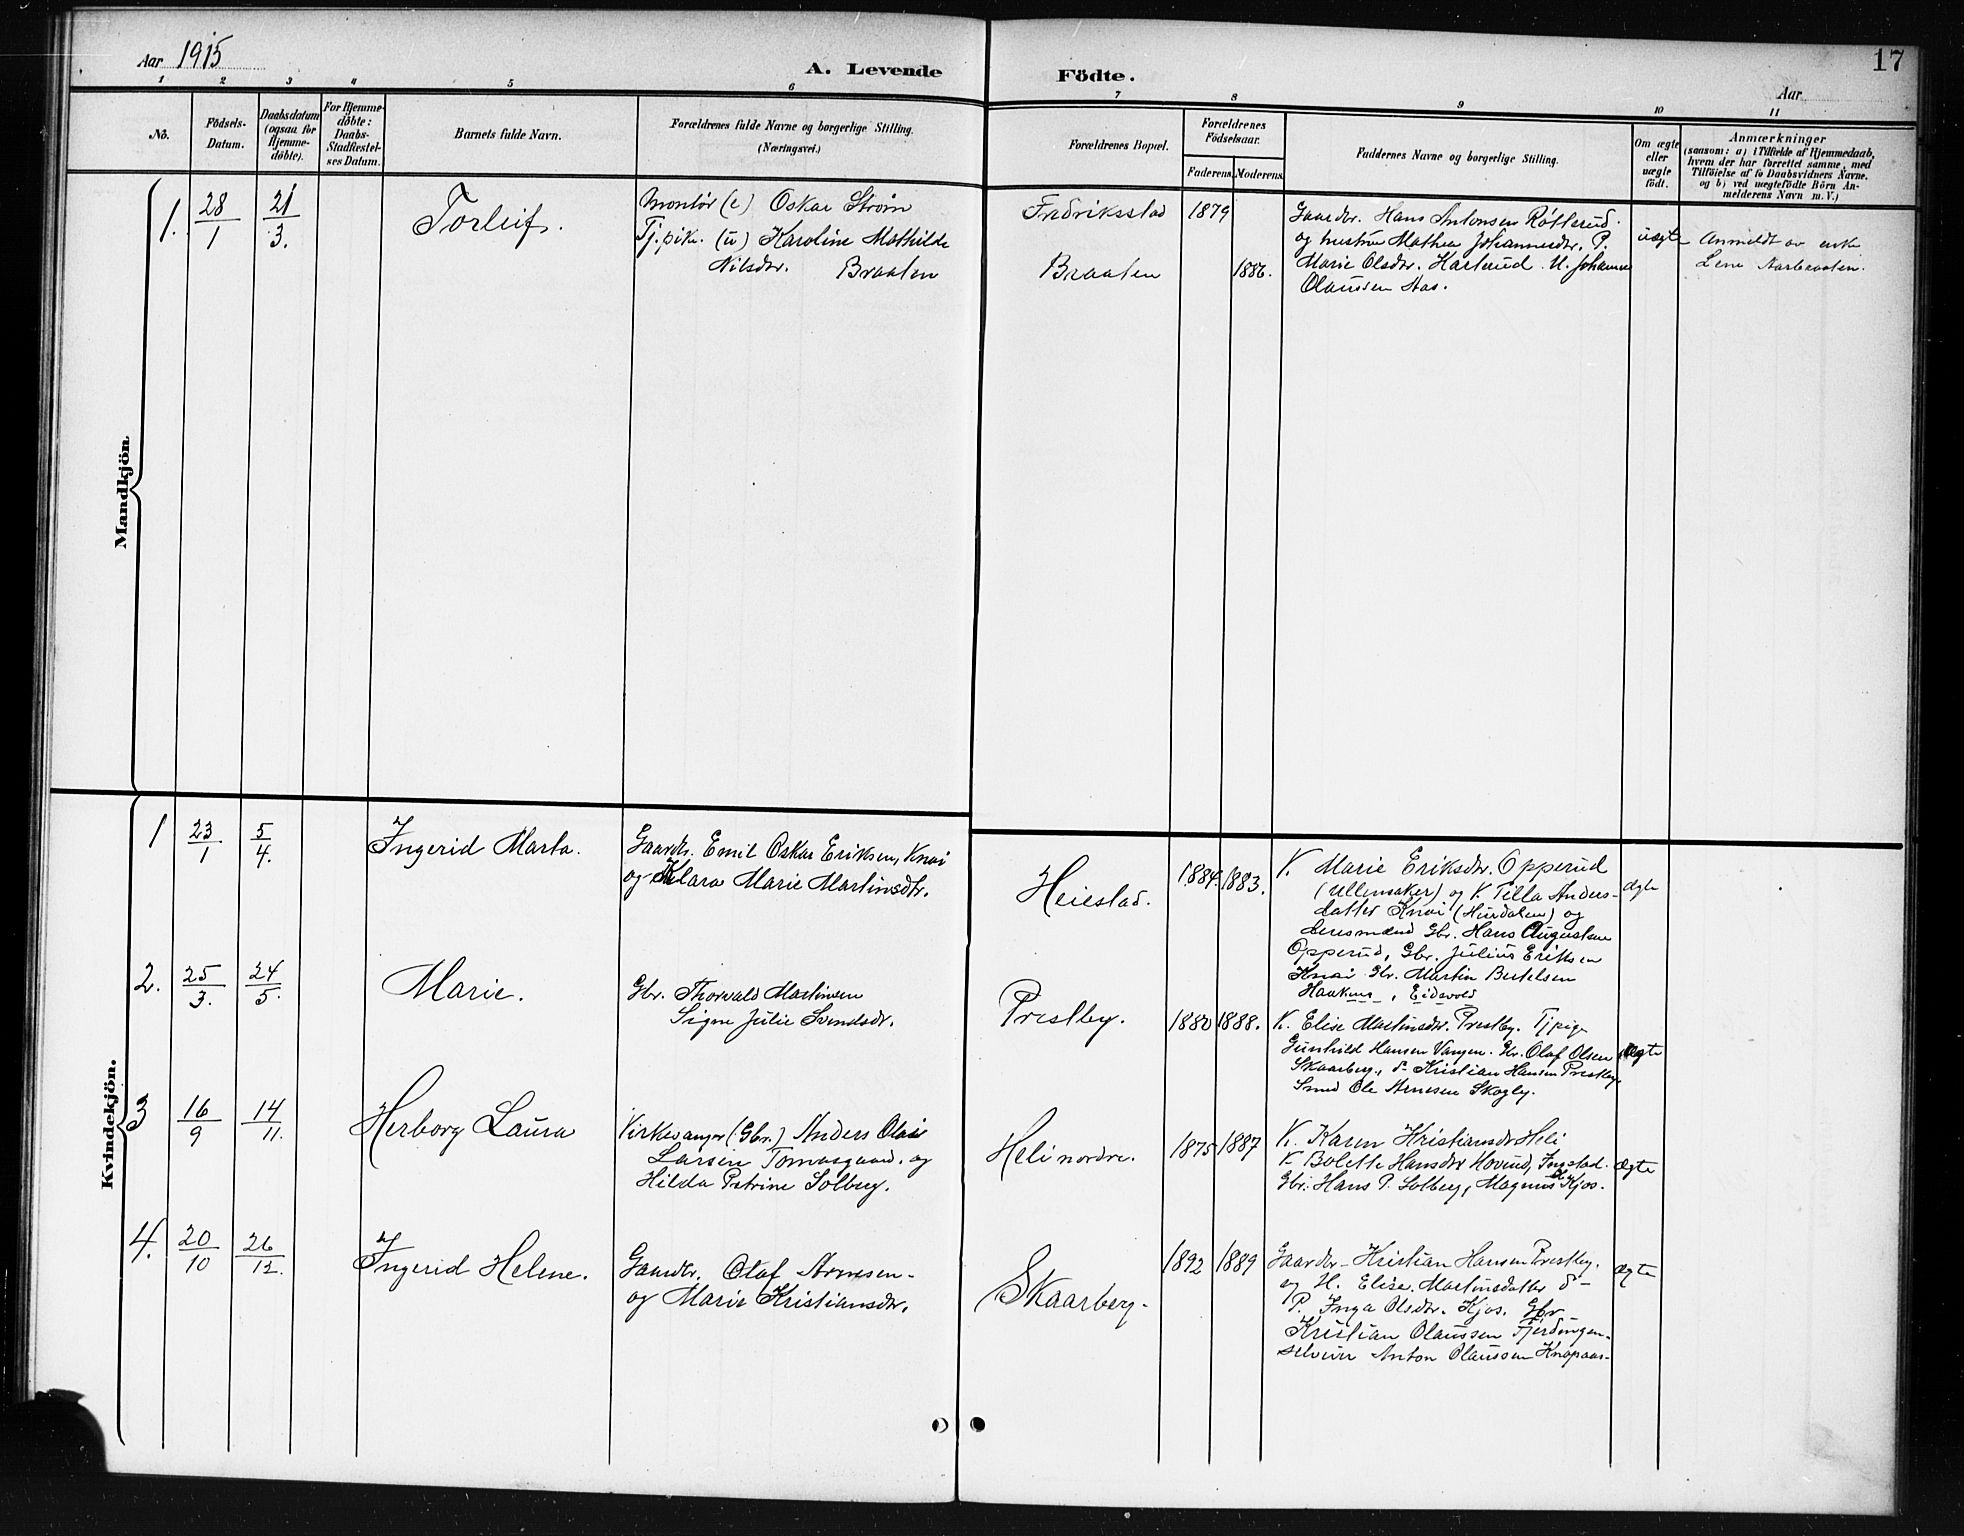 Aar 1915
A. Levende
Födte.
Aar
17
1 2 3 4 5 6 7 8 9 10 11
No.
Födsels-
Datum.
Daabsdatum
(ogsaa for
Hjemme-
döbte).
For Hjemme-
döbte:
Daabs-
Stadfæstel-
ses Datum.
Barnets fulde Navn.
Forældrenes fulde Navne og borgerlige Stilling.
(Næringsvei.)
Forældrenes Bopæl.
Forældrenes
Födselsaar.
Faderens. Moderens.
Faddernes Navne og borgerlige Stilling.
Om ægte
eller
uægte
födt.
Anmærkninger
(saasom: a) i Tilfælde af Hjemmedaab,
hvem der har forrettet samme, med
Tilföielse af to Daabsvidners Navne,
og b) ved uægtefödte Börn An-
melderens Navn m.V.)
Mandkjön
1. 28/1 21/3. Torleif.
Montør (e) Oskar Strøm
Tj.pike. (u) Karoline Mathilde
Nilsdtr. Braaten
Fredriksstad 1879
Braaten 1886.
Gaardbr. Hans Antonsen Røtterud
og hustru Mathea Johannesdtr. P.
Marie Olsdtr. Harterud. U. Johannes
Olaussen Aas.
uægte
Anmeldt av enke
Lene Aarbraaten.
Kvindekjön.
1 23/1 5/4. Ingerid Marta.
Gaardb. Emil Oskar Eriksen, Knai
og Klara Marie Martinsdtr.
Heiestad. 1884. 1883.
K. Marie Eriksdtr. Opperud
(Ullensaker) og K. Tilla Anders-
datter Knai (Hurdalen) og
Gbr. Hans Augustsen
Opperud, Gbr. Julius Eriksen
Knai Gbr. Martin Bertelsen
, Eidsvold
ægte
2. 25/3. 24/5. Marie.
Gbr. Thorvald Martinsen
Signe Julie Svendsdtr.
Prestby. 1880 1888.
K. Elise Martinsdtr. Prestby. Tjpige
Gunhild Hansen Vangen. Gbr. Olaf Olsen
Skaarberg, S- Kristian Hansen Prestby,
Smed Ole Arnesen Skogly.
Ægte
3 16/9 14/11. Herborg Laura
Kirkesanger (Gbr.) Anders Olai
Larsen Tomasgaard. og
Hilda Petrine Solberg.
Heli nordre. 1875 1887
K. Karen Kristiansdtr Heli
K Bolette Hansdtr Hovind,
Gbr. Hans P. Solberg, Magnus Kjos.
Ægte
4. 20/10 26/12. Ingerid Helene.
Gaardbr. Olaf Arnesen-
og Marie Kristiansdtr.
Skaarberg. 1892 1889
Gaardbr- Kristian Hansen Prestby.
og H. Elise Martinsdatter S-
P. Inga Olsdtr. Kjos. Gbr
Kristian Olaussen Fjerdingen-
selveier Anton Olaussen Knapaas-
Ægte